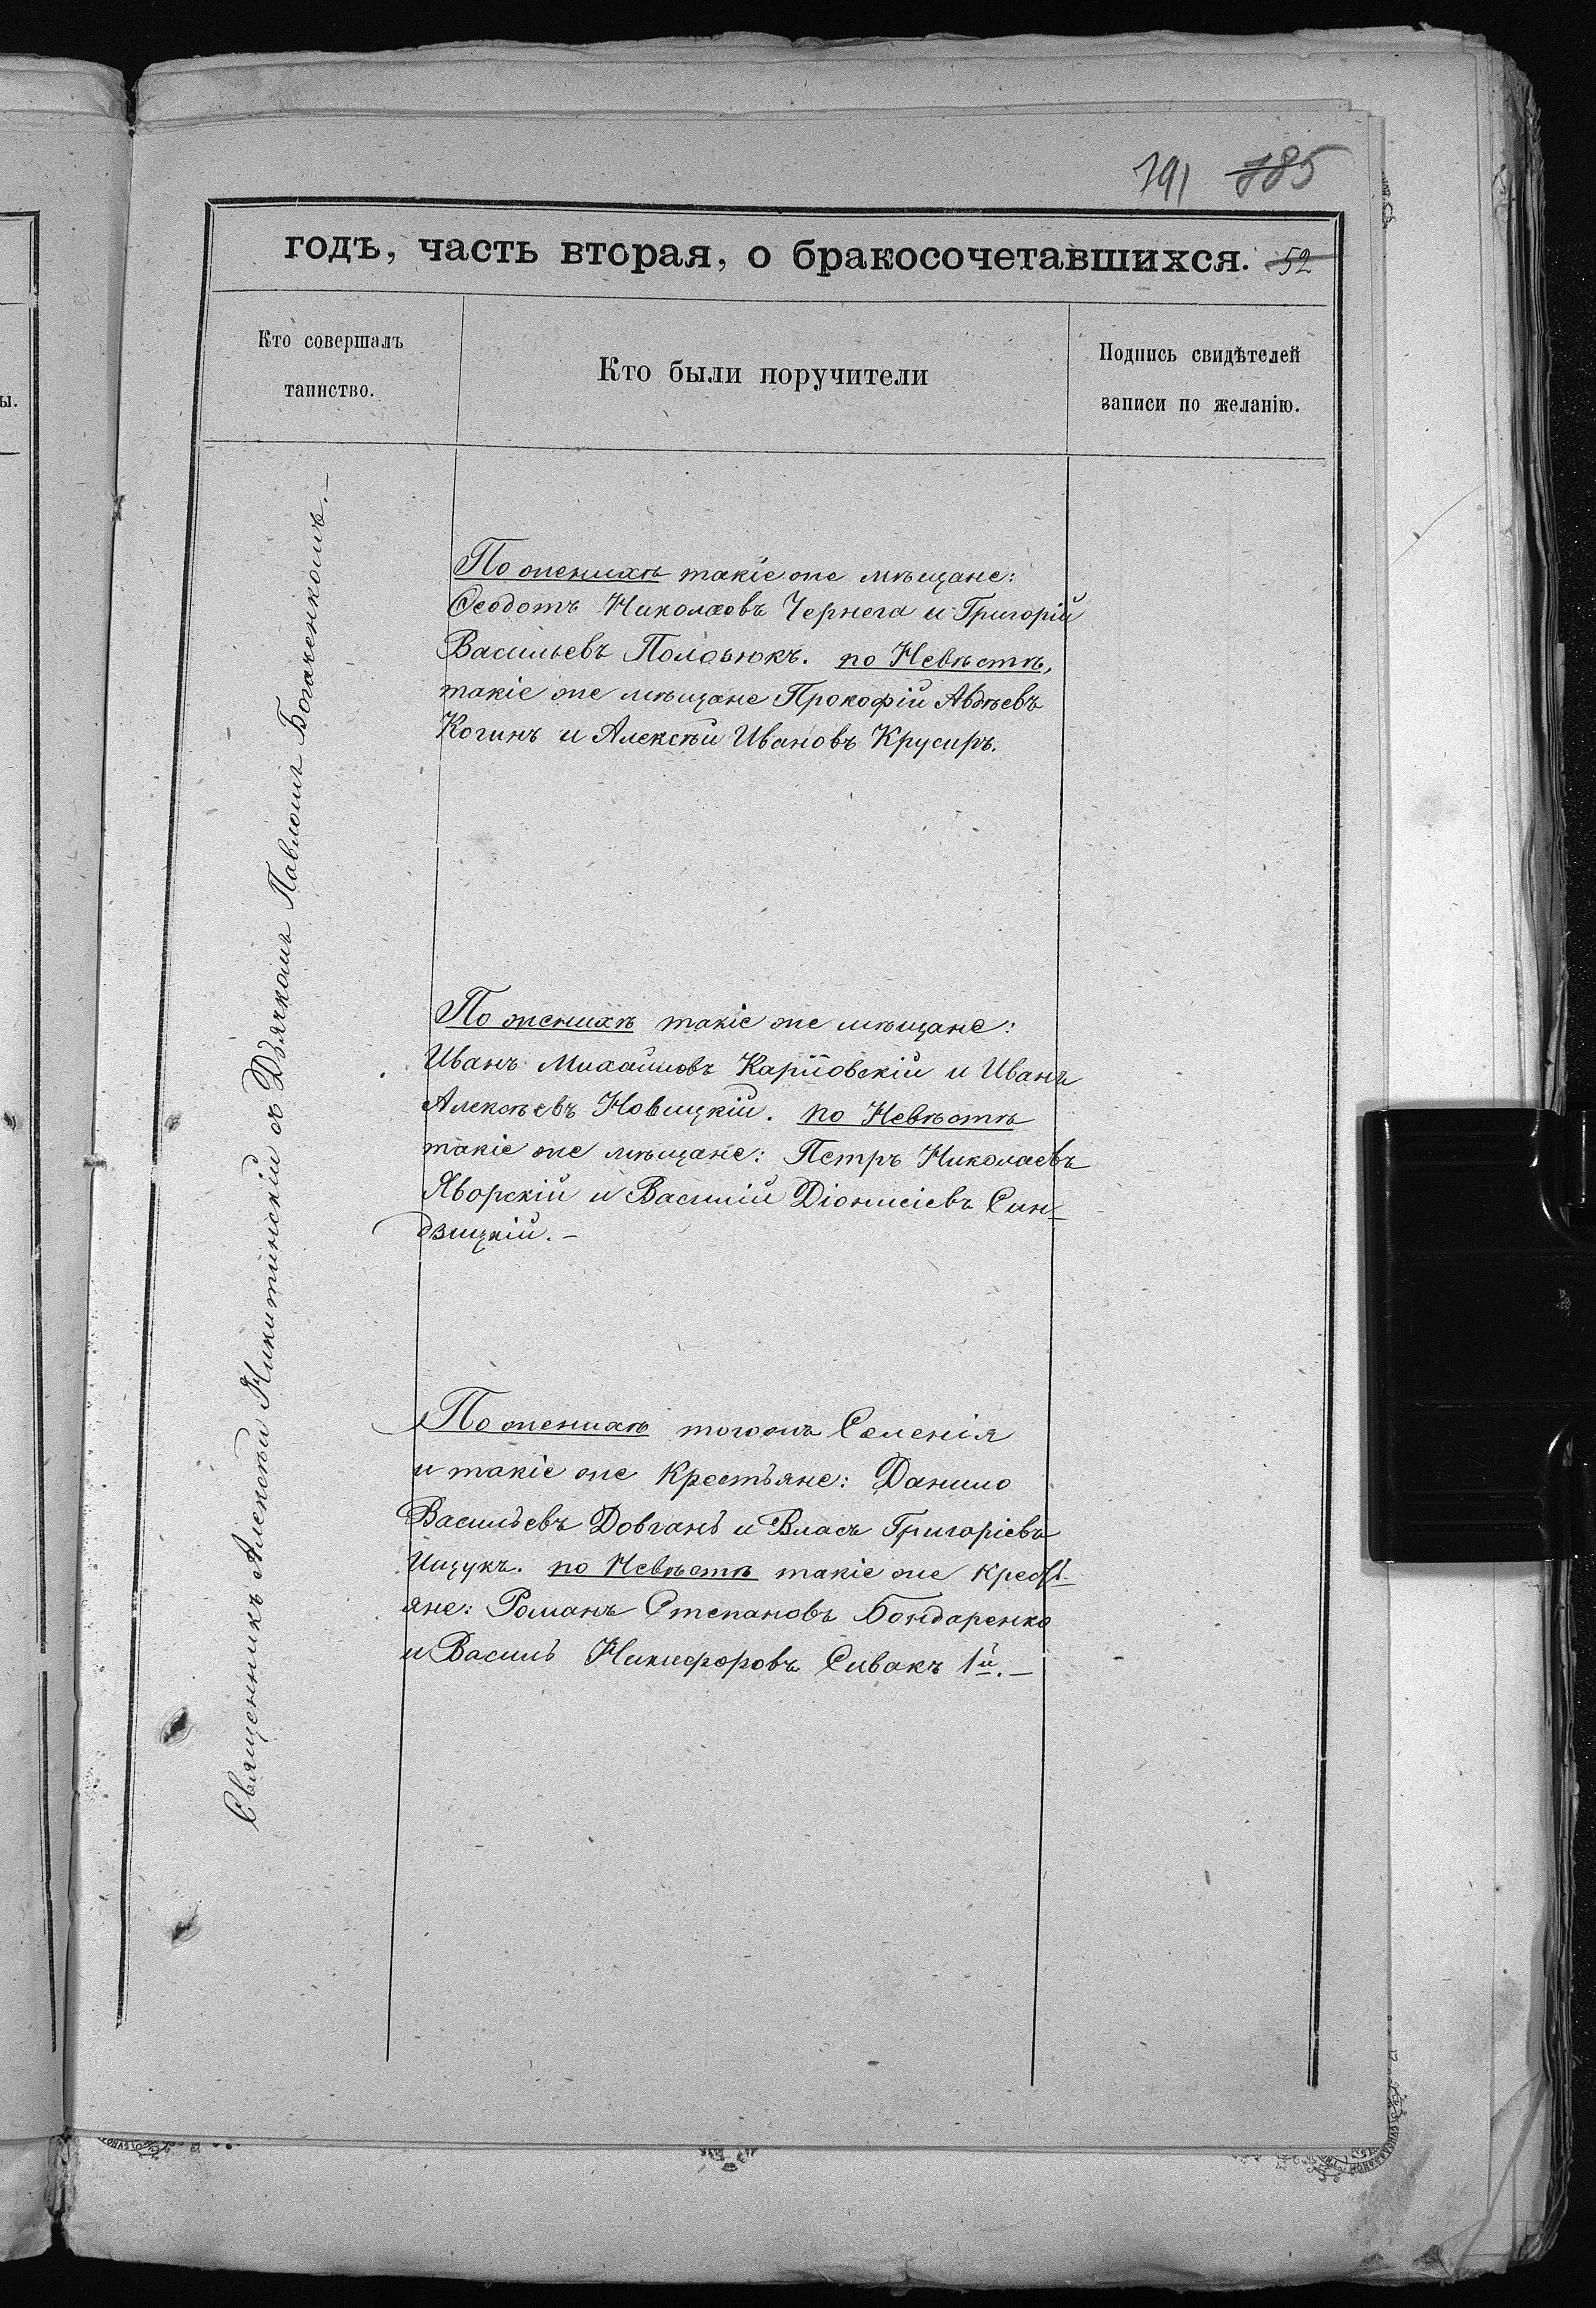 791 785
годъ, часть вторая, о бракосочетавшихся. 52
Кто совершалъ
таинство.
Кто были поручители
Подпись свидѣтелей
записи по желанію.
ы.
Священникъ Алексѣй Никитинскій съ Дьячкомъ Павломъ Богаченкомъ.—
По женихѣ такіе же мѣщане:
Ѳеодотъ Николаевъ Чернега и Григорій
Васильевъ по Невѣстѣ,
такіе же мѣщане Прокофій Авдѣевъ
Когинъ и Алексѣй Ивановъ Крусиръ.
По женихѣ такіе же мѣщане:
Иванъ Михайловъ Карповскій и Иванъ
Алексѣевъ Новицкій. по Невѣстѣ
такіе же мѣщане: Петръ Николаевъ
Яворскій и Василій Діонисіевъ Син-
дзицкій.—
По женихѣ тогожъ Селенія
и такіе же Крестьяне: Данило
Васильевъ Довгань и Власъ Григоріевъ
Ищукъ. по Невѣстѣ такіе же Кресть-
яне: Романъ Степановъ Бондаренко
и Василь Никифоровъ Сивакъ 1й.—